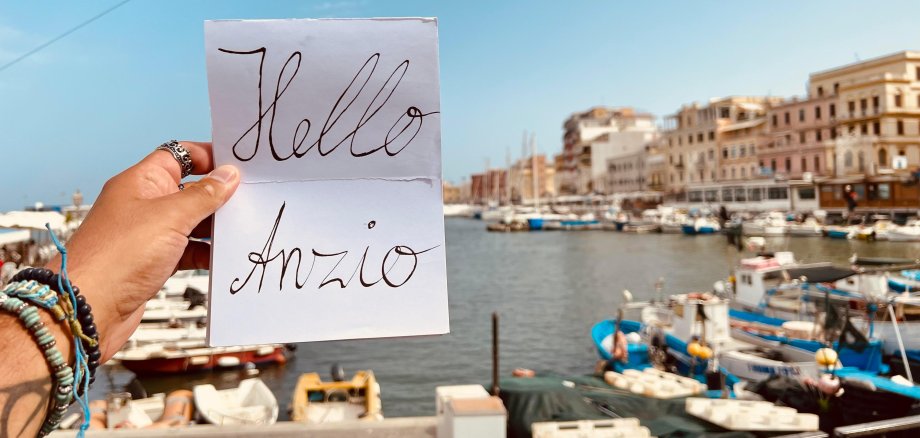 Hello
Anzio